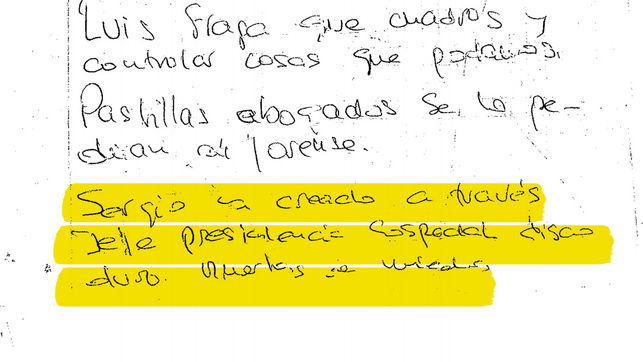 Luis Fraga que cuadros y
controlar cosas que podamos.
Pastillas abogados se lo pe-
dian al forense.
Sergio creado a través
Jefe presidencia Cospedal disco
duro. Muertos de miedo